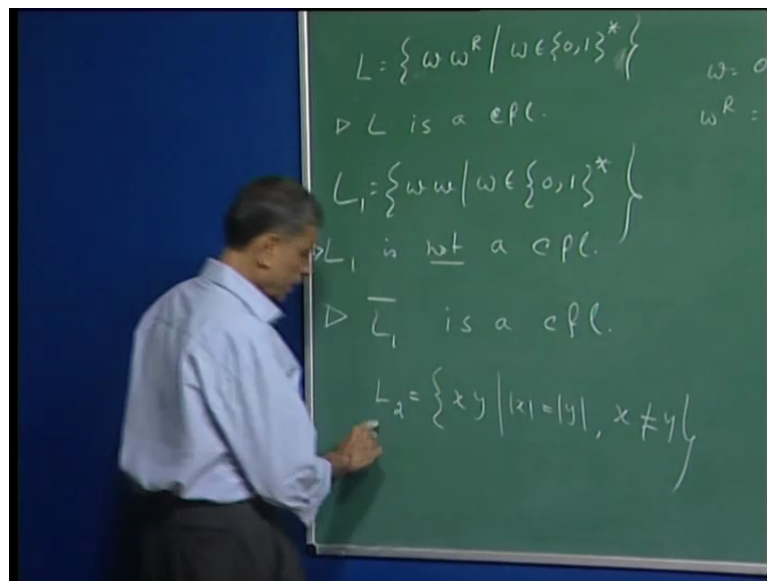 L = { w w^R | w ∈ {0,1}* }
w = 0
▷ L is a cfl.
w^R =
L₁ = { w w | w ∈ {0,1}* }
▷ L₁ is not a cfl.
▷ L̅₁ is a cfl.
L₂ = { x y | |x| = |y|, x ≠ y }